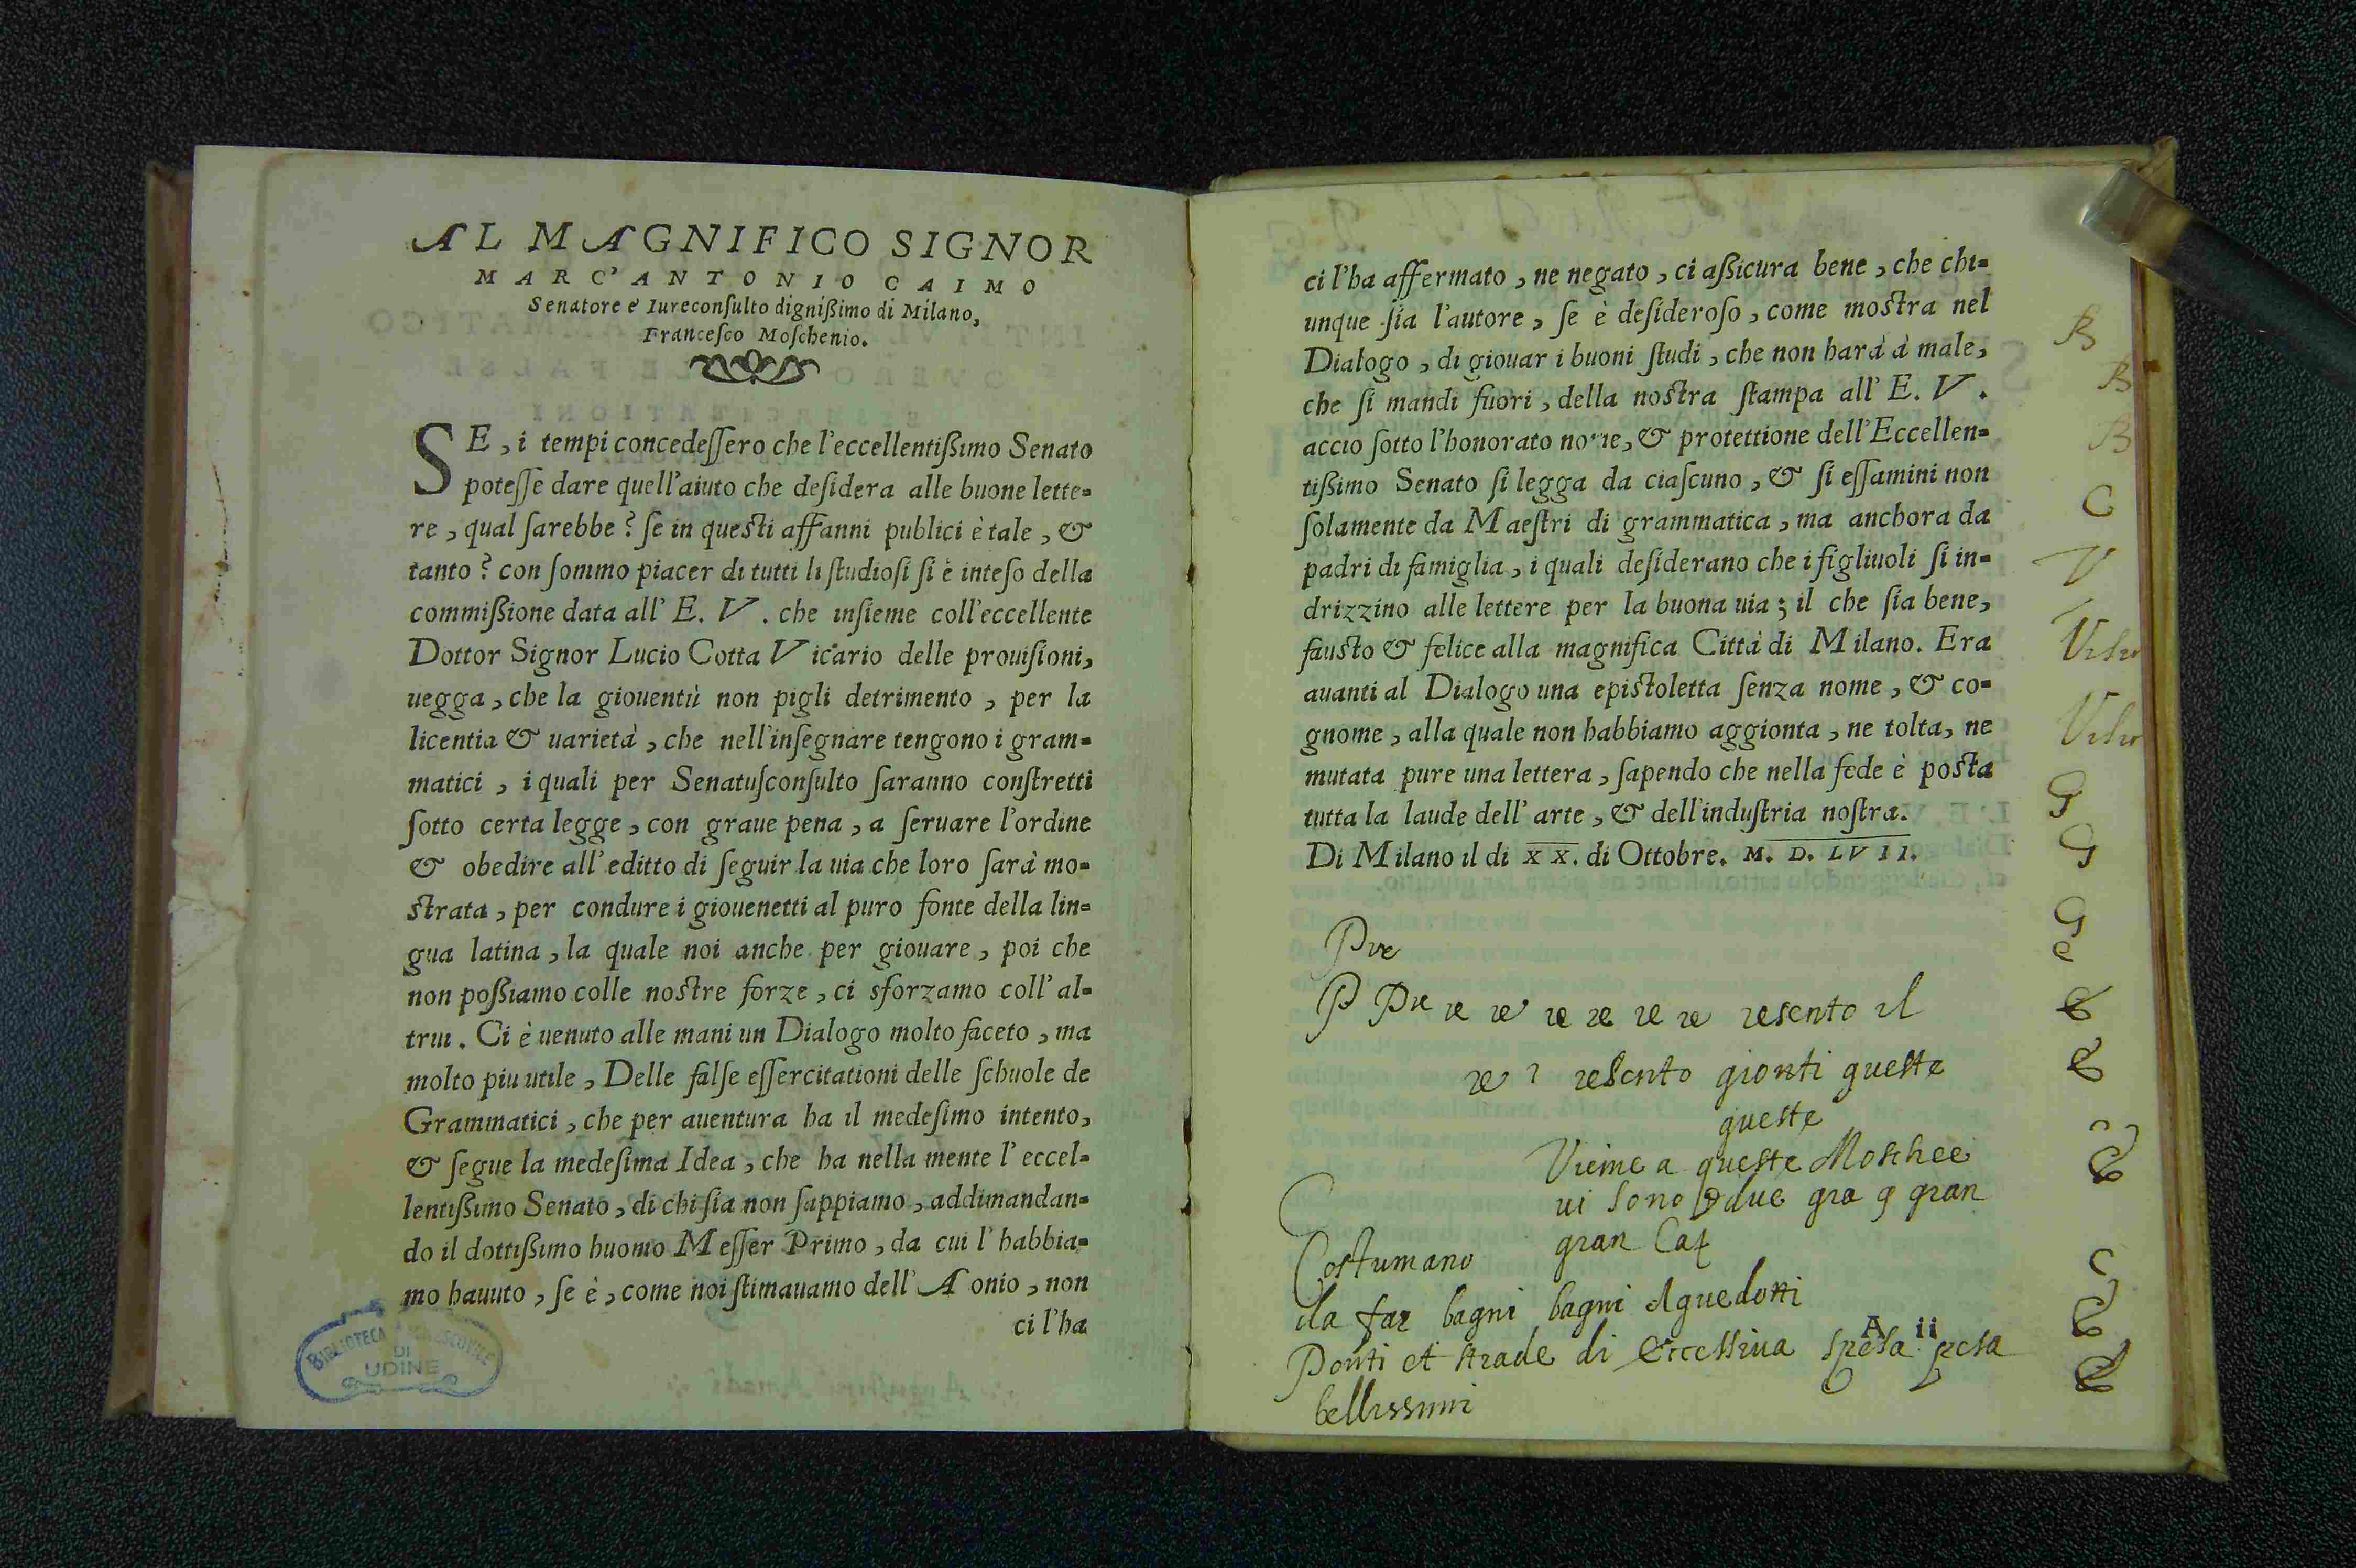 AL MAGNIFICO SIGNOR
MARC'ANTONIO CAIMO
Senatore e Iureconſulto digniſſimo di Milano,
Franceſco Moſchenio.
SE, i tempi concedeſſero che l'eccellentiſſimo Senato
poteſſe dare quell'aiuto che deſidera alle buone lette=
re, qual ſarebbe? ſe in queſti affanni publici è tale, &
tanto? con ſommo piacer di tutti li ſtudioſi ſi è inteſo della
commiſſione data all' E. V. che inſieme coll'eccellente
Dottor Signor Lucio Cotta Vicario delle prouiſioni,
uegga, che la giouentù non pigli detrimento, per la
licentia & uarietà, che nell'inſegnare tengono i gram=
matici, i quali per Senatuſconſulto ſaranno conſtretti
ſotto certa legge, con graue pena, a ſeruare l'ordine
& obedire all'editto di ſeguir la uia che loro ſarà mo=
ſtrata, per condure i giouenetti al puro fonte della lin=
gua latina, la quale noi anche per giouare, poi che
non poſſiamo colle noſtre forze, ci sforzamo coll'al=
trui. Ci è uenuto alle mani un Dialogo molto faceto, ma
molto piu utile, Delle falſe eſſercitationi delle ſchuole de
Grammatici, che per auentura ha il medeſimo intento,
& ſegue la medeſima Idea, che ha nella mente l'eccel=
lentiſſimo Senato, di chi ſia non ſappiamo, addimandan=
do il dottiſſimo huomo Meſſer Primo, da cui l'habbia=
mo hauuto, ſe è, come noi ſtimauamo dell' A onio, non
ci l'ha
BIBLIOTECA ARCIVESCOVILE
DI
UDINE
ci l'ha affermato, ne negato, ci aſſicura bene, che chi=
unque ſia l'autore, ſe è deſideroſo, come moſtra nel
Dialogo, di giouar i buoni ſtudi, che non harà à male,
che ſi mandi fuori, della noſtra ſtampa all' E. V.
accio ſotto l'honorato nome, & protettione dell'Eccellen=
tiſſimo Senato ſi legga da ciaſcuno, & ſi eſſamini non
ſolamente da Maeſtri di grammatica, ma anchora da
padri di famiglia, i quali deſiderano che i figliuoli ſi in=
drizzino alle lettere per la buona uia; il che ſia bene,
fauſto & felice alla magnifica Città di Milano. Era
auanti al Dialogo una epiſtoletta ſenza nome, & co=
gnome, alla quale non habbiamo aggionta, ne tolta, ne
mutata pure una lettera, ſapendo che nella fede è poſta
tutta la laude dell'arte, & dell'induſtria noſtra.
Di Milano il di XX. di Ottobre. M. D. LVII.
Pre
P Pre re re re re re re resento il
re resento gionti queste
queste
Vieme a queste Moschee
ui sono due gra g gran
gran Caf
Costumano
da far bagni bagni Aguedotti
A ii
Ponti et strade di eccessiua spesa spesa
bellissimi
B
B
B
C
V
G
G
G
e